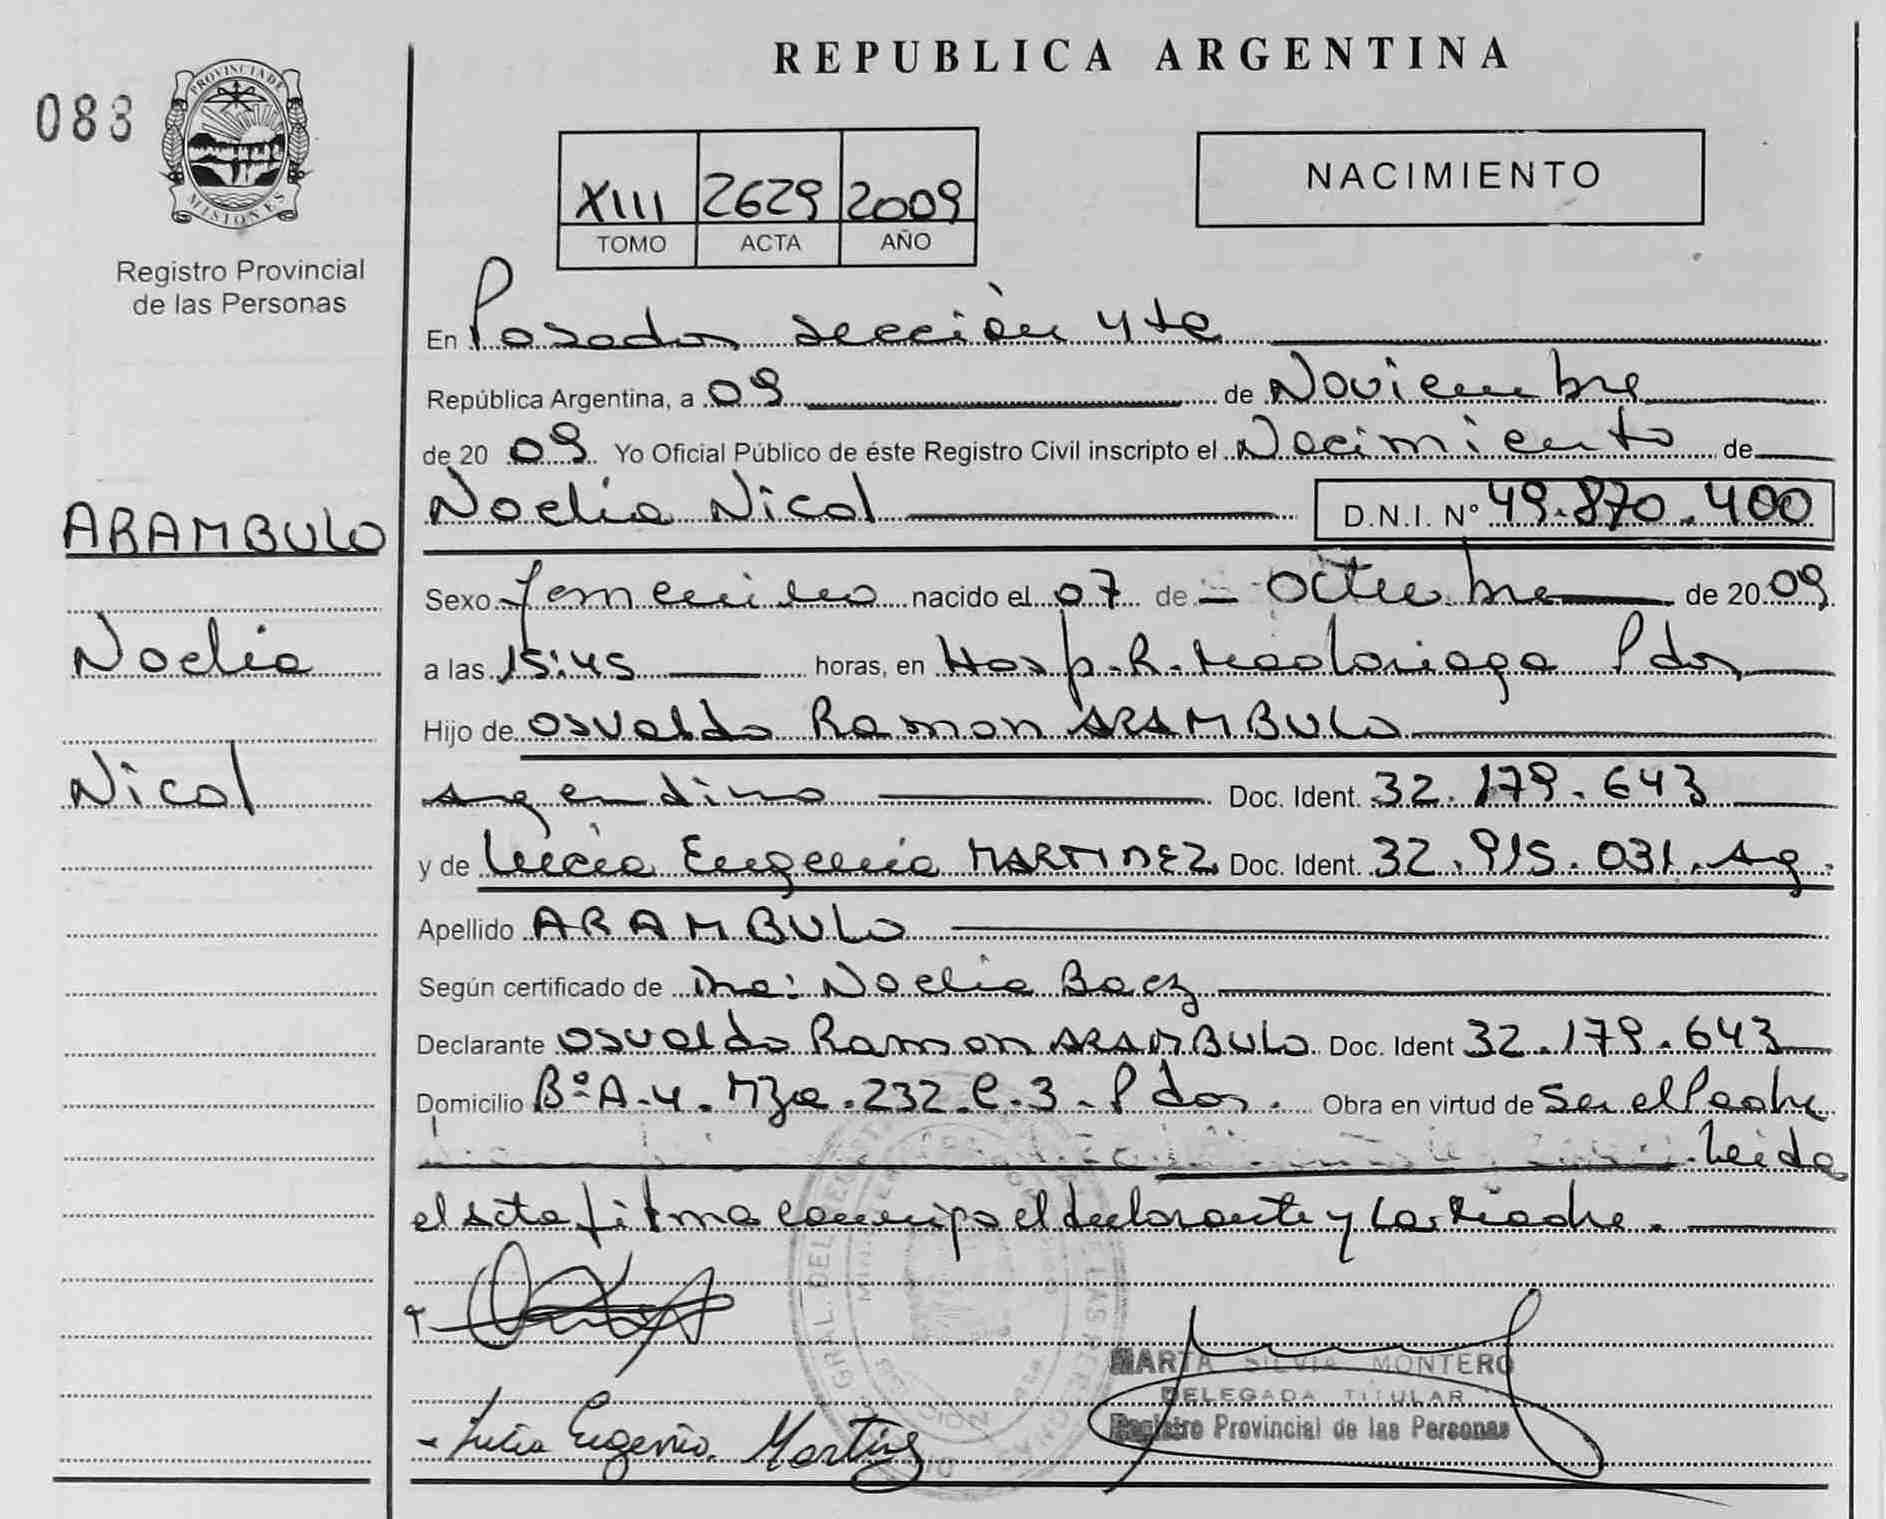 REPUBLICA ARGENTINA
083
PROVINCIA DE
MISIONES
Registro Provincial
de las Personas
XIII 2629 2009
TOMO ACTA AÑO
NACIMIENTO
En Posadas sección 4ta
República Argentina, a 09 de Noviembre
de 20 09 Yo Oficial Público de éste Registro Civil inscripto el Nacimiento de
Noelia Nicol D.N.I. Nº 49.870.400
ARAMBULO
Noelia
Nicol
Sexo femenino nacido el 07 de Octubre de 20 09
a las 15:45 horas, en Hosp. R. Madariaga Pdas
Hijo de Osvaldo Ramon ARAMBULO
Argentino Doc. Ident. 32.179.643
y de Lucia Eugenia MARTINEZ Doc. Ident. 32.915.031. Arg.
Apellido ARAMBULO
Según certificado de Dra: Noelia Baez
Declarante Osvaldo Ramon ARAMBULO Doc. Ident 32.179.643
Domicilio Bº A-4. Mza. 232. C. 3 - Pdas. Obra en virtud de Ser el Padre
Leida
el acta firma conmigo el declarante y la Madre.
MARTA SILVIA MONTERO
DELEGADA TITULAR
Registro Provincial de las Personas
Lucia Eugenia. Martinez